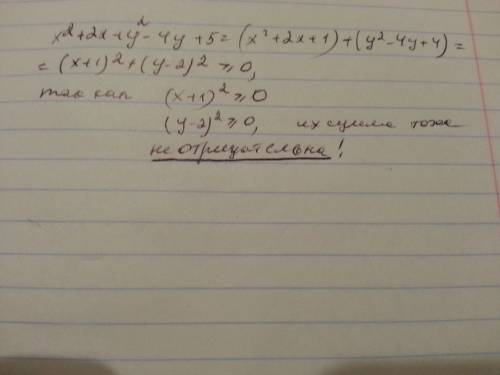 x²+2x+y²-4y+5=(x²+2x+1)+(y²-4y+4)=
=(x+1)²+(y-2)²≥0,
так как (x+1)²≥0
(y-2)²≥0, их сумма тоже
не отрицательна!